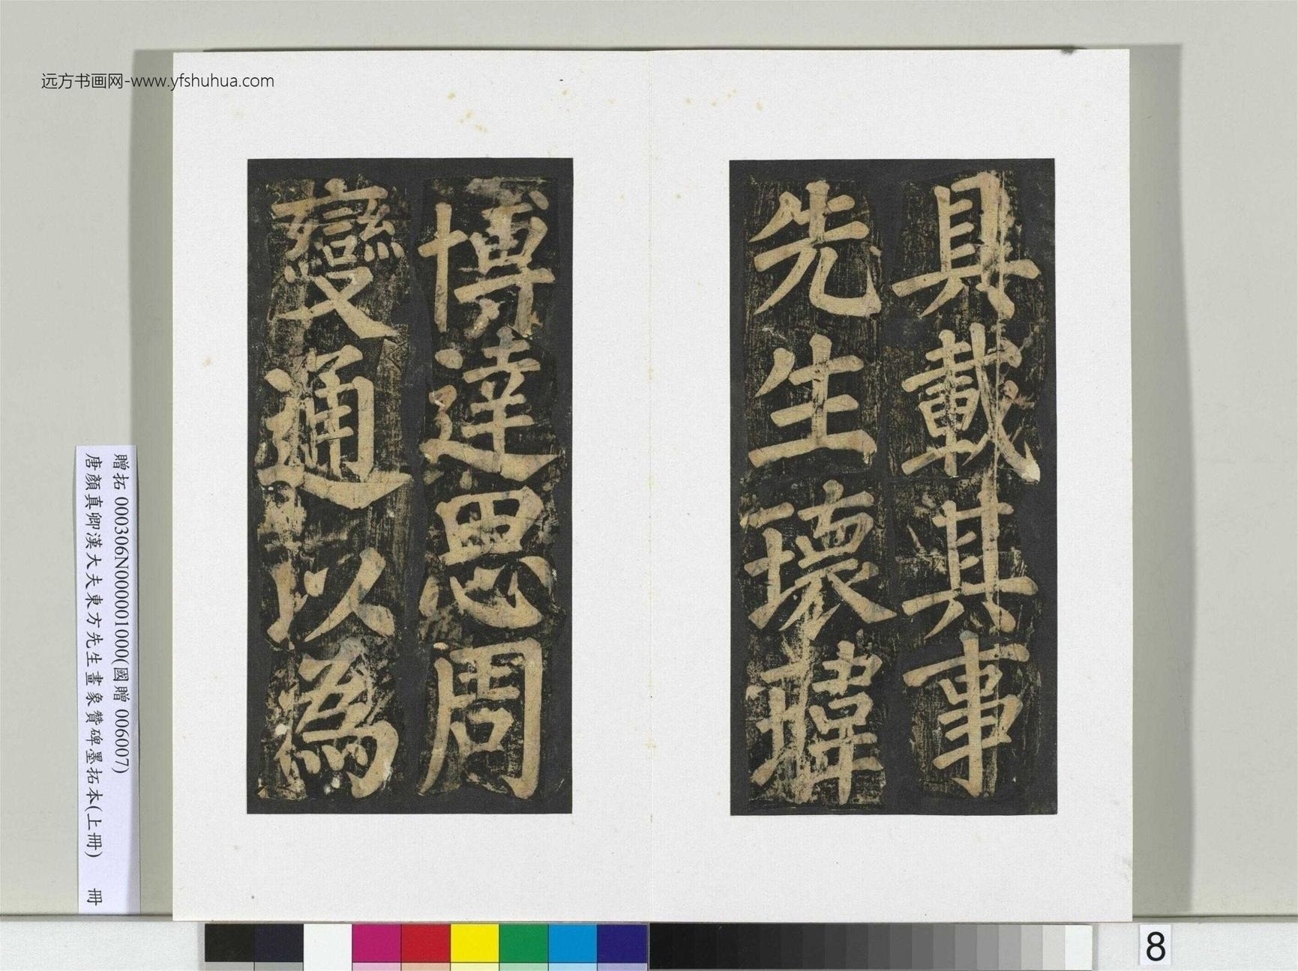 远方书画网-www.yfshuhua.com
具載其事
先生瓌瑋
博達思周
變通以為
贈拓 000306N000001000(國贈 006007)
唐顏真卿漢大夫東方先生畫象贊碑墨拓本(上冊) 冊
8